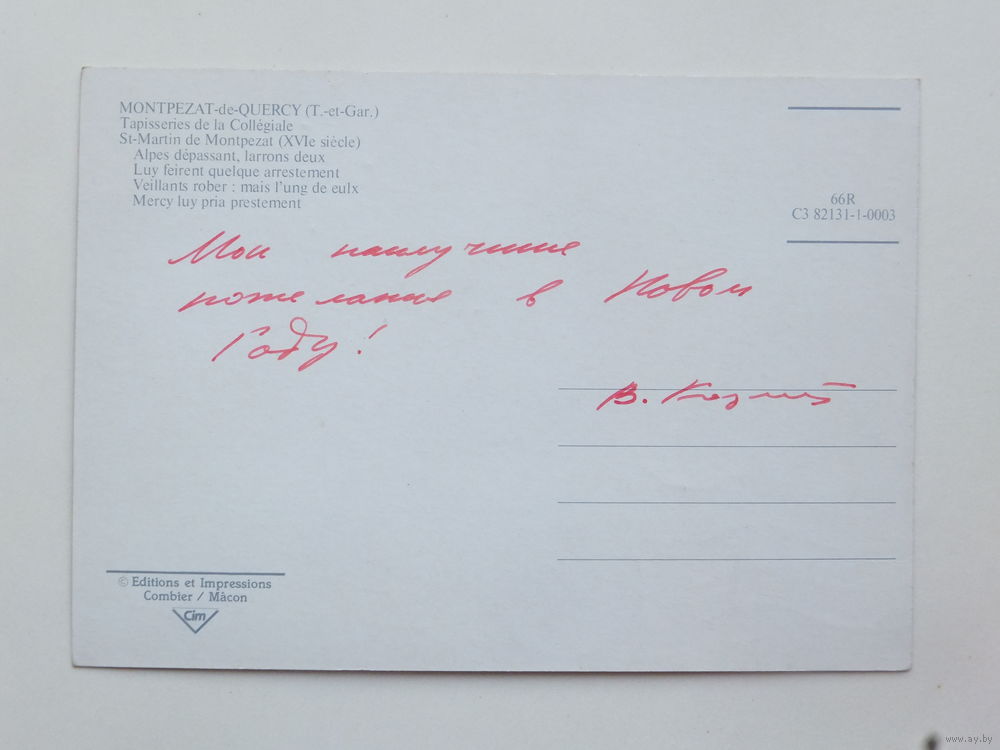 MONTPEZAT-de-QUERCY (T.-et-Gar.)
Tapisseries de la Collégiale
St-Martin de Montpezat (XVIe siècle)
Alpes dépassant, larrons deux
Luy feirent quelque arrestement
Veillants rober : mais l'ung de eulx
Mercy luy pria prestement
66R
C3 82131-1-0003
Мои наилучшие
пожелания в Новом
Году!
В.
© Editions et Impressions
Combier / Mâcon
Cim
www.ay.by